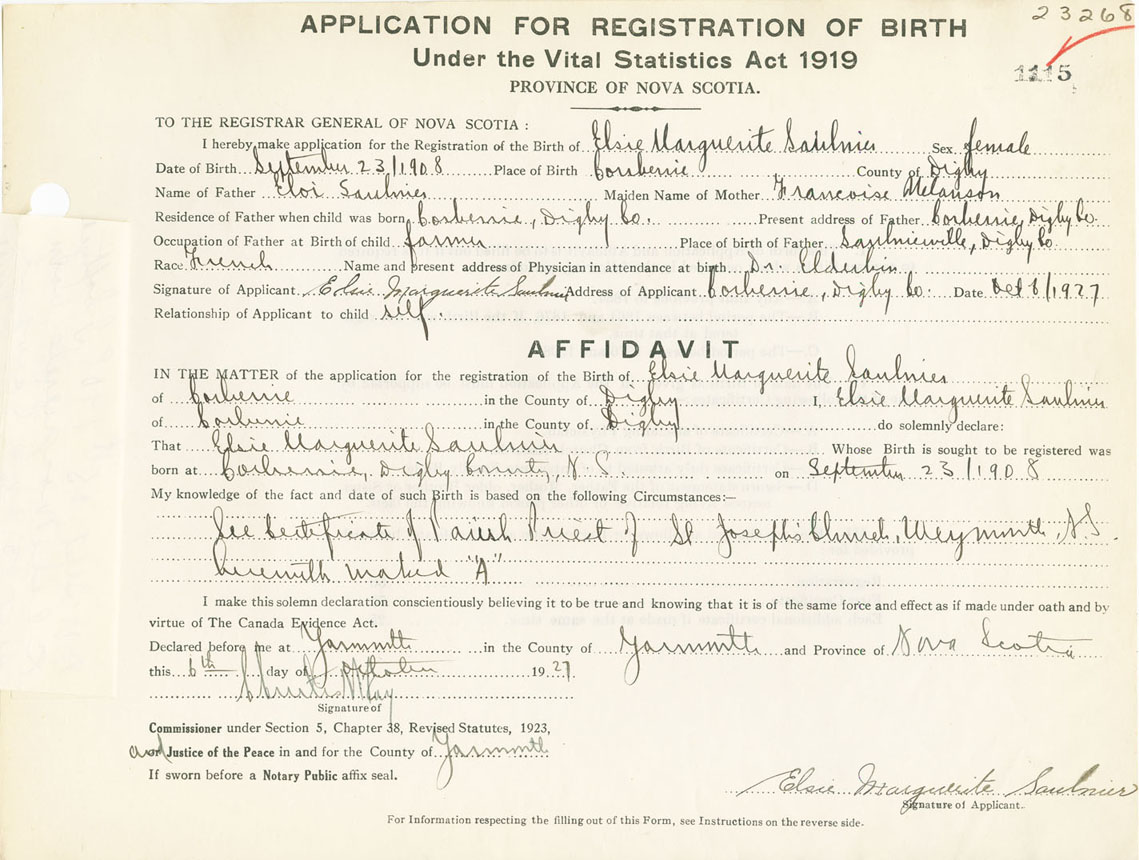 23268
1115
APPLICATION FOR REGISTRATION OF BIRTH
Under the Vital Statistics Act 1919
PROVINCE OF NOVA SCOTIA.
TO THE REGISTRAR GENERAL OF NOVA SCOTIA :
I hereby make application for the Registration of the Birth of Elsie Marguerite Saulnier Sex female
Date of Birth September 23/1908 Place of Birth Corberrie County of Digby
Name of Father Eloi Saulnier Maiden Name of Mother Francoise Melanson
Residence of Father when child was born Corberrie, Digby Co. Present address of Father Corberrie, Digby Co.
Occupation of Father at Birth of child farmer Place of birth of Father Saulnierville, Digby Co
Race French Name and present address of Physician in attendance at birth Dr. Elderkin
Signature of Applicant Elsie Marguerite Saulnier Address of Applicant Corberrie, Digby Co. Date Oct 6/1927
Relationship of Applicant to child self.
AFFIDAVIT
IN THE MATTER of the application for the registration of the Birth of Elsie Marguerite Saulnier
of Corberrie in the County of Digby I, Elsie Marguerite Saulnier
of Corberrie in the County of Digby do solemnly declare:
That Elsie Marguerite Saulnier Whose Birth is sought to be registered was
born at Corberrie, Digby County, N.S. on September 23/1908
My knowledge of the fact and date of such Birth is based on the following Circumstances:—
See Certificate of Parish Priest of St Josephs Church, Weymouth, N.S.
herewith marked "A"
I make this solemn declaration conscientiously believing it to be true and knowing that it is of the same force and effect as if made under oath and by
virtue of The Canada Evidence Act.
Declared before me at Yarmouth in the County of Yarmouth and Province of Nova Scotia
this 6th day of October 1927
Signature of
Commissioner under Section 5, Chapter 38, Revised Statutes, 1923,
and Justice of the Peace in and for the County of Yarmouth
If sworn before a Notary Public affix seal.
Elsie Marguerite Saulnier
Signature of Applicant.
For Information respecting the filling out of this Form, see Instructions on the reverse side.